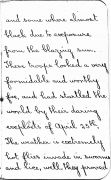 and some where almost
black due to exposure
from the blazing sun.
These troops looked a very
formidable and worthy
foe, and had startled the
world by their daring
exploits of April 25th.
The weather is extremely
hot flies invade in swarms
and lice, well, they